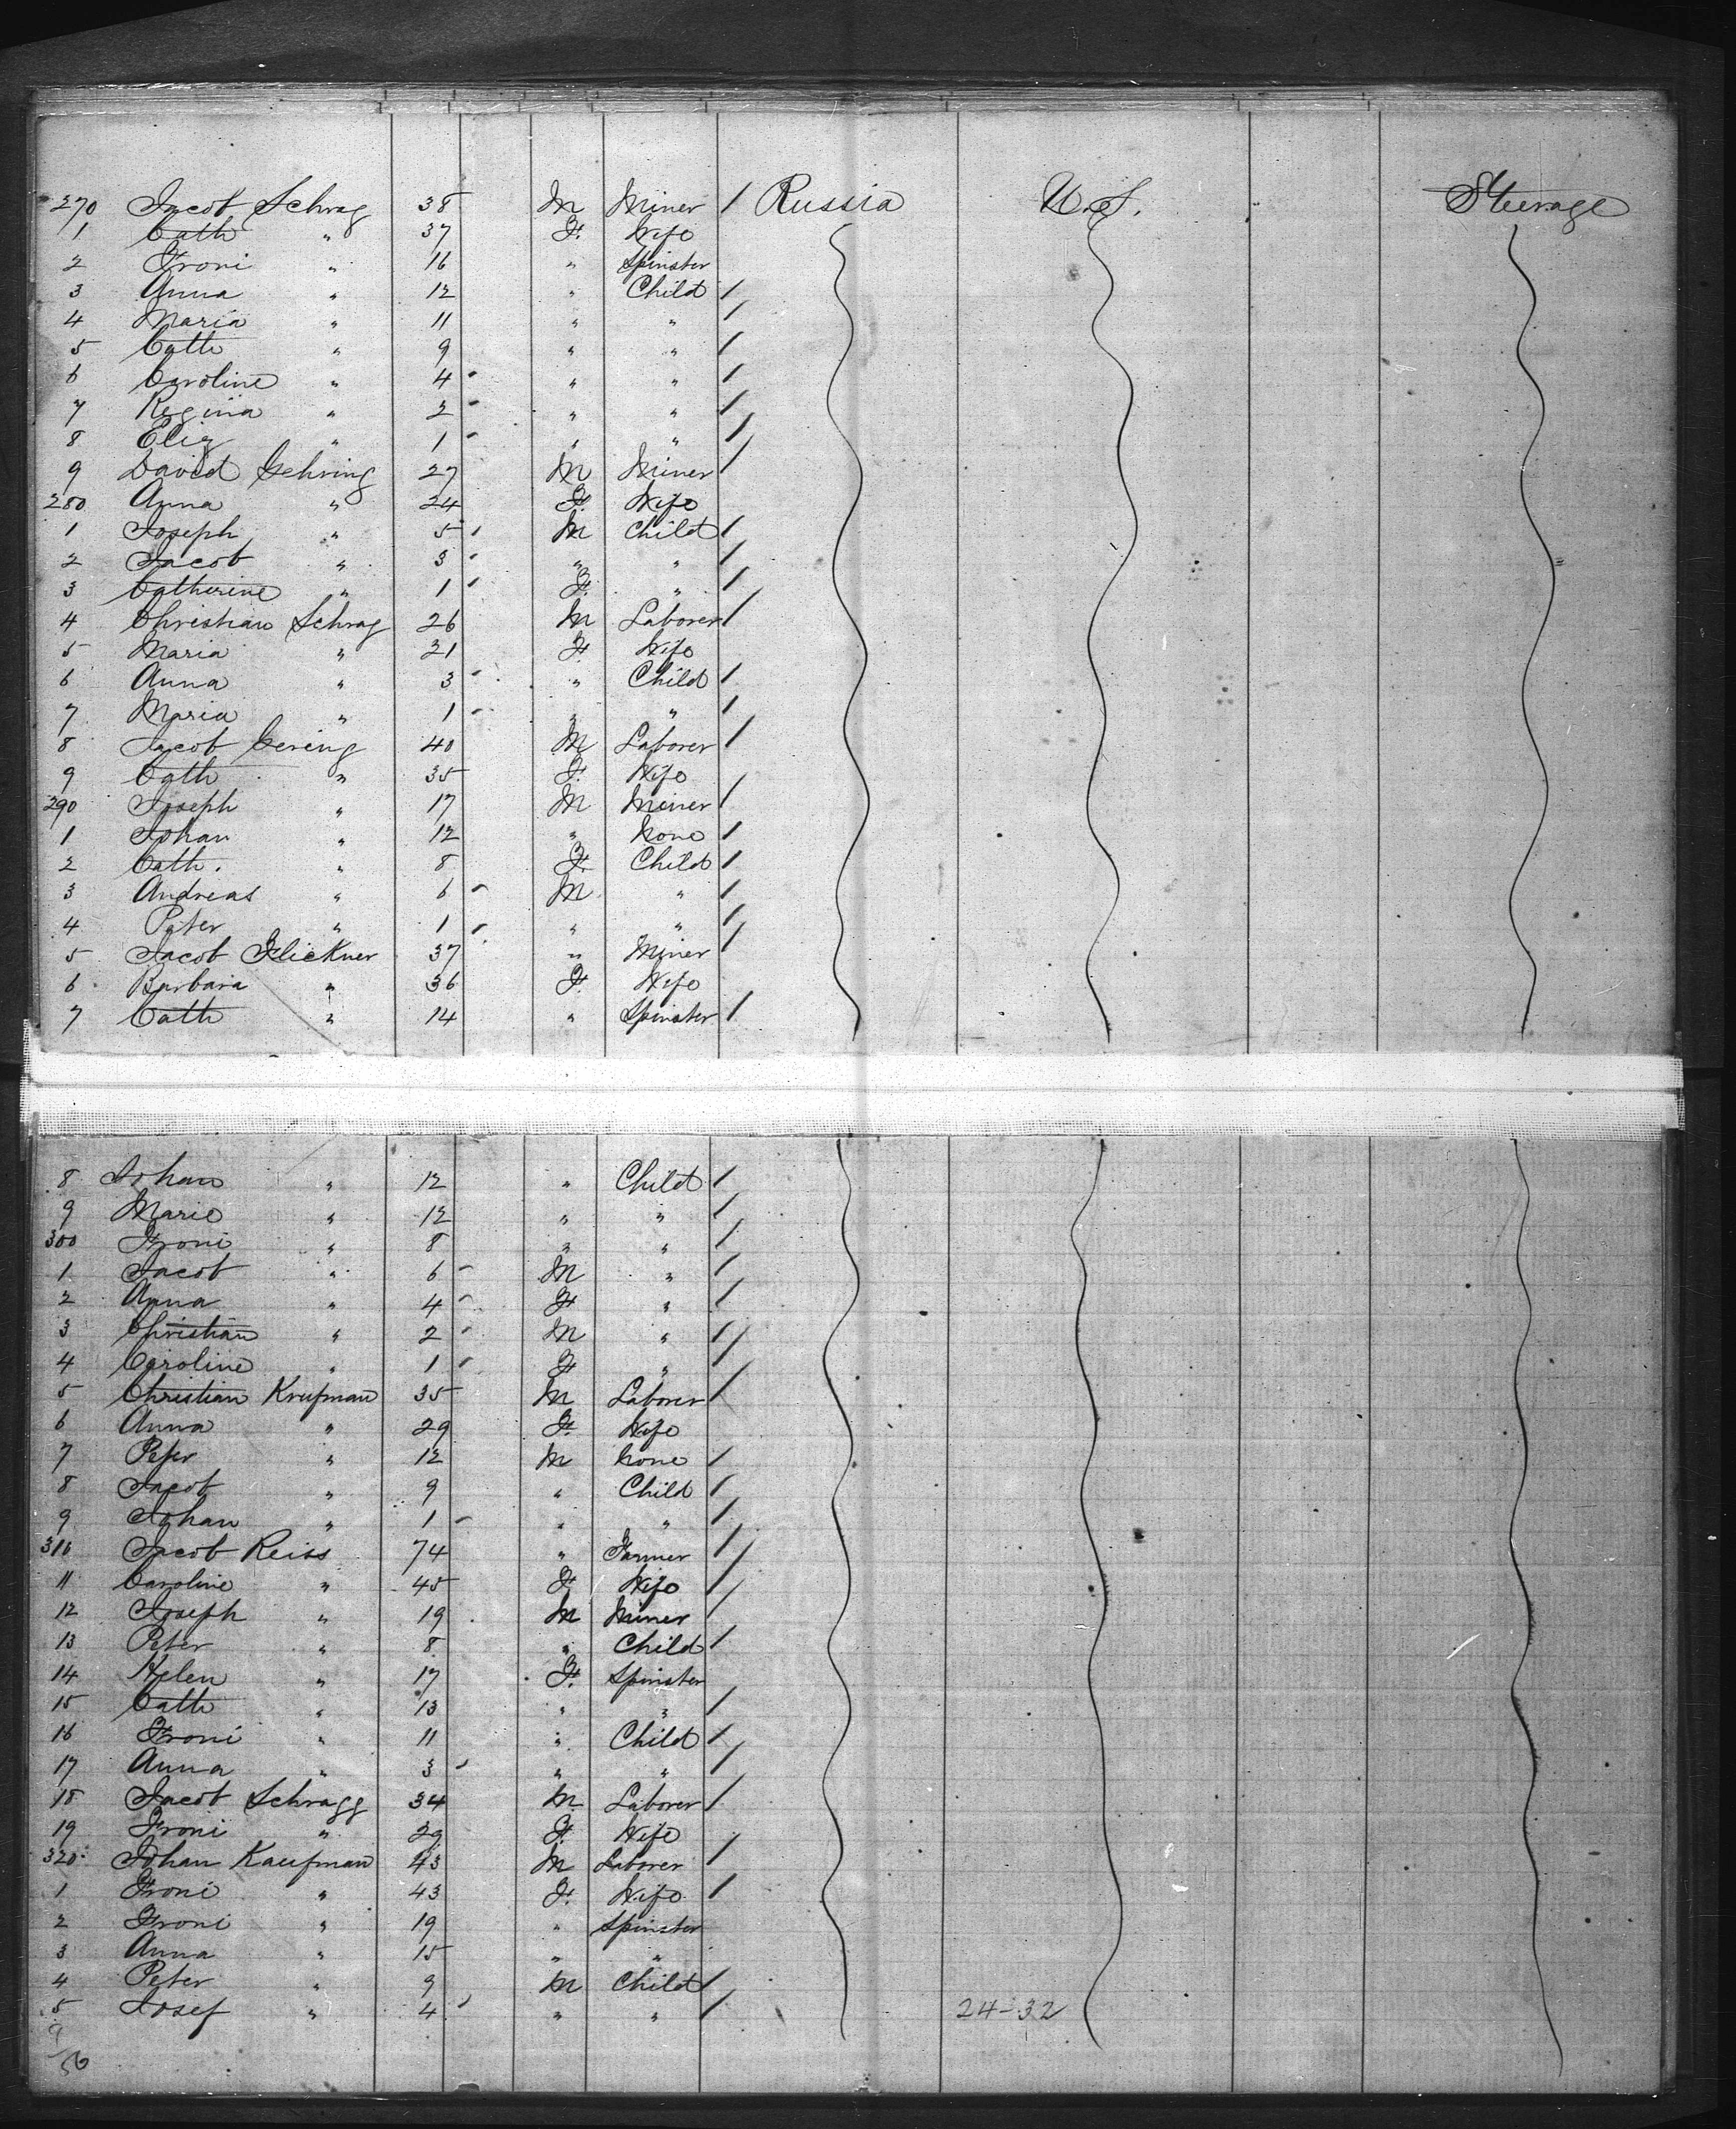 270 Jacob Schrag 38 M Miner / Russia U.S. Steerage
1 Cath " 37 F. Wife
2 Froni " 16 " Spinster
3 Anna " 12 " Child /
4 Maria " 11 " " /
5 Cath " 9 " " /
6 Caroline " 4 - " " /
7 Regina " 2 - " " /
8 Eliz " 1 - " " /
9 David Gehring 27 M Miner /
280 Anna " 24 F. Wife
1 Joseph " 5 - M Child /
2 Jacob " 3 - " " /
3 Catherine " 1 - F. " /
4 Christian Schrag 26 M Laborer /
5 Maria " 21 F. Wife
6 Anna " 3 - " Child /
7 Maria " 1 - " " /
8 Jacob Gering 40 M Laborer /
9 Cath " 35 F. Wife
290 Joseph " 17 M Miner /
1 Johan " 12 " None /
2 Cath. " 8 F. Child /
3 Andreas " 6 - M " /
4 Peter " 1 - " " /
5 Jacob Flickner 37 " Miner /
6 Barbara " 36 F. Wife
7 Cath " 14 " Spinster /
8 Johan " 12 " Child /
9 Marie " 12 " " /
300 Froni " 8 " " /
1 Jacob " 6 - M " /
2 Anna " 4 - F. " /
3 Christian " 2 - M " /
4 Caroline " 1 - F. " /
5 Christian Krufman 35 M Laborer /
6 Anna " 29 F. Wife
7 Peter " 12 M None /
8 Jacob " 9 " Child /
9 Johan " 1 - " " /
310 Jacob Reiss 74 " Farmer /
11 Caroline " 45 F. Wife /
12 Joseph " 19 M Miner /
13 Peter " 8 " Child /
14 Helen " 17 F. Spinster
15 Cath " 13 " " /
16 Froni " 11 " Child /
17 Anna " 3 - " " /
18 Jacob Schragg 34 M Laborer /
19 Froni " 29 F. Wife
320 Johan Kaufman 43 M Laborer /
1 Froni " 43 F. Wife /
2 Froni " 19 " Spinster
3 Anna " 15 " "
4 Peter " 9 M Child /
5 Josef " 4 - " " / 24-32